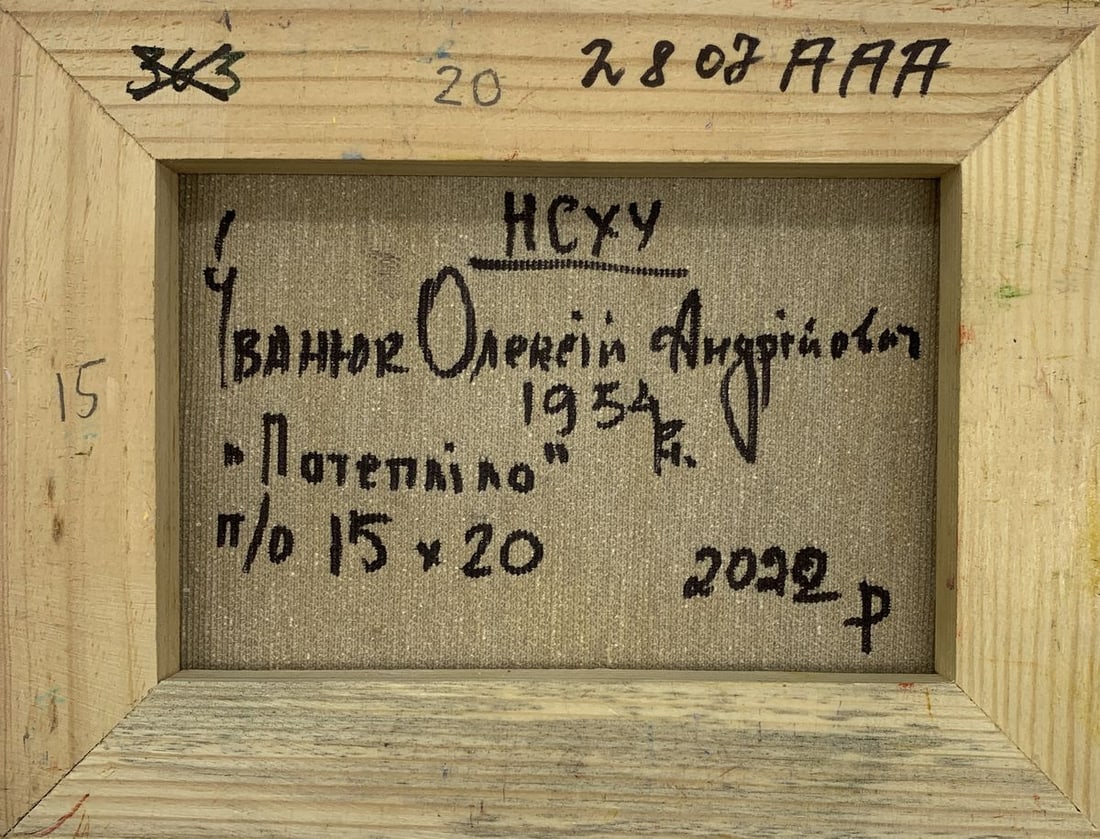 363 20 2807 AAA
15
НСХУ
Іванюк Олексій Андрійович
1954 р.н.
"Потепліло"
п/о 15 x 20
2022 р